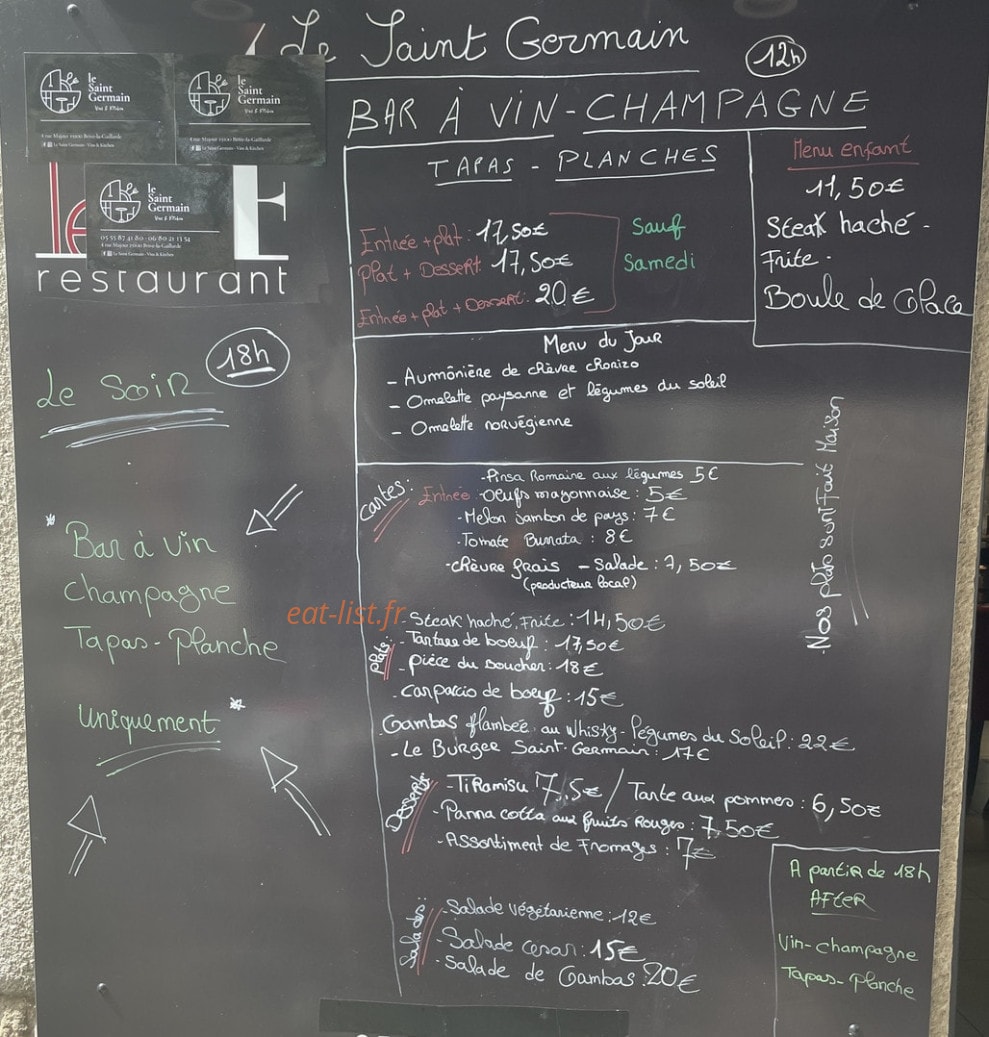 Le Saint Germain
12h
BAR À VIN - CHAMPAGNE
le
Saint
Germain
Vins & Kitchen
4 rue Majour 19100 Brive-la-Gaillarde
Le Saint Germain - Vins & Kitchen
le
Saint
Germain
4 rue Majour 19100 Brive-la-Gaillarde
Le Saint Germain - Vins & Kitchen
le
Saint
Germain
05 55 87 41 80 - 06 80 21 13 54
4 rue Majour 19100 Brive-la-Gaillarde
Le Saint Germain - Vins & Kitchen
le
restaurant
TAPAS - PLANCHES
Entrée + plat : 17,50€
Plat + Dessert : 17,50€
Entrée + plat + Dessert : 20€
Sauf
Samedi
Menu enfant
11,50€
Steak haché -
Frite -
Boule de Glace
Menu du Jour
- Aumônière de chèvre chorizo
- Omelette paysanne et légumes du soleil
- Omelette norvégienne
Le SOIR
18h
* Bar à vin
Champagne
Tapas - Planche
Uniquement *
Cartes :
Entrée
- Pinsa Romaine aux légumes 5€
- Oeufs mayonnaise : 5€
- Melon Jambon de pays : 7€
- Tomate Burrata : 8€
- Chèvre frais - Salade : 7,50€
(producteur local)
- Nos plats sont Fait Maison
eat-list.fr
Plats :
- Steak haché, Frite : 14,50€
- Tartare de boeuf : 17,50€
- pièce du Boucher : 18€
- Carpaccio de boeuf : 15€
Gambas flambée au Whisky - légumes du Soleil : 22€
- Le Burger Saint-Germain : 17€
Desserts
- Tiramisu 7,5€ / Tarte aux pommes : 6,50€
- Panna cotta aux fruits Rouges : 7,50€
- Assortiment de Fromages : 7€
Salades
- Salade végétarienne : 12€
- Salade cesar : 15€
- Salade de Gambas : 20€
A partir de 18h
AFTER
Vin - champagne
Tapas - Planche